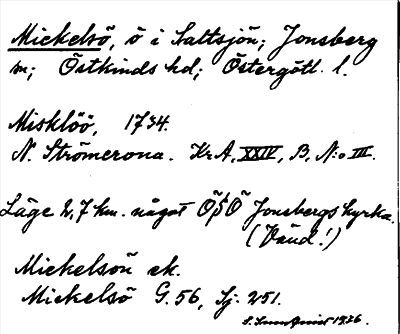 Mickelsö, ö i Saltsjön; Jonsberg
sn; Östkinds hd; Östergötl. l.
Misklöö, 1734.
N. Strömerona. Kr.A, XXIV, B, N:o III.
Läge 2,7 km. något ÖSÖ Jonsbergs kyrka.
(Vänd!)
Mickelsön ek.
Mickelsö G. 56, Sj. 251.
1926.